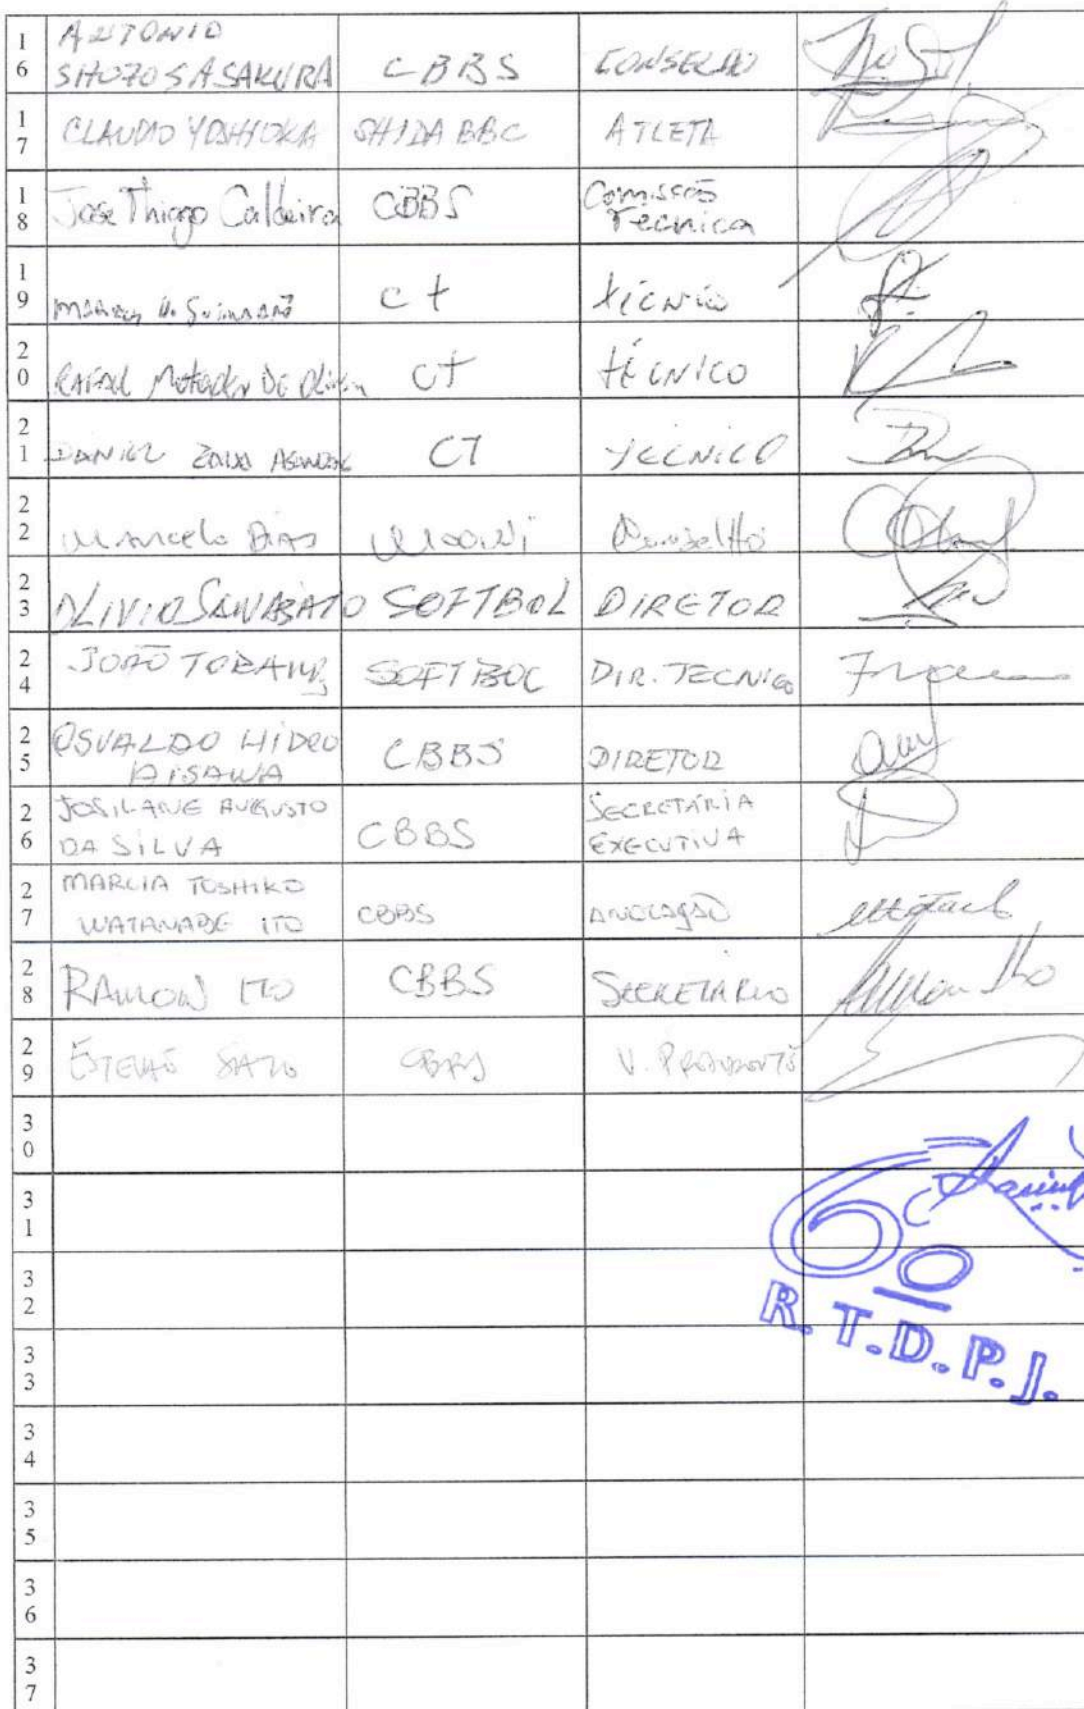 16 ANTONIO
SHOZO SASAKURA CBBS CONSELHO
17 CLAUDIO YOSHIOKA SHIDA BBC ATLETA
18 Jose Thiago Caldeira CBBS Comissão
Tecnica
19 CT técnico
20 RAFAEL DE CT TÉCNICO
21 DANIEL CT TÉCNICO
22 Marcelo Dias Conselho
23 OLIVIO SAWASATO SOFTBOL DIRETOR
24 JOÃO SOFTBOL DIR. TECNICO
25 OSVALDO HIDEO
AISAWA CBBS DIRETOR
26 JOSILANE AUGUSTO
DA SILVA CBBS SECRETÁRIA
EXECUTIVA
27 MARCIA TOSHIKO
WATANABE ITO CBBS ANOTAÇÃO
28 RAMON ITO CBBS SECRETARIO
29 ESTEVÃO SATO CBBS V. PRESIDENTE
30
31
32
33
34
35
36
37
6º
R.T.D.P.J.